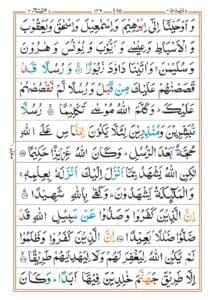 وَاَوْحَيْنَاۤ اِلٰۤى اِبْرٰهِيْمَ وَاِسْمٰعِيْلَ وَاِسْحٰقَ وَيَعْقُوْبَ
وَالْاَسْبَاطِ وَعِيْسٰى وَاَيُّوْبَ وَيُوْنُسَ وَهٰرُوْنَ
وَسُلَيْمٰنَ ۚ وَاٰتَيْنَا دَاوٗدَ زَبُوْرًا ۚ وَرُسُلًا قَدْ
قَصَصْنٰهُمْ عَلَيْكَ مِنْ قَبْلُ وَرُسُلًا لَّمْ نَقْصُصْهُمْ
عَلَيْكَ ؕ وَكَلَّمَ اللّٰهُ مُوْسٰى تَكْلِيْمًا ۚ رُسُلًا
مُّبَشِّرِيْنَ وَمُنْذِرِيْنَ لِئَلَّا يَكُوْنَ لِلنَّاسِ عَلَى اللّٰهِ
حُجَّةٌۢ بَعْدَ الرُّسُلِ ؕ وَكَانَ اللّٰهُ عَزِيْزًا حَكِيْمًا
لٰكِنِ اللّٰهُ يَشْهَدُ بِمَاۤ اَنْزَلَ اِلَيْكَ اَنْزَلَهٗ بِعِلْمِهٖ ۚ
وَالْمَلٰٓئِكَةُ يَشْهَدُوْنَ ؕ وَكَفٰى بِاللّٰهِ شَهِيْدًا ؕ
اِنَّ الَّذِيْنَ كَفَرُوْا وَصَدُّوْا عَنْ سَبِيْلِ اللّٰهِ قَدْ
ضَلُّوْا ضَلٰلًاۢ بَعِيْدًا اِنَّ الَّذِيْنَ كَفَرُوْا وَظَلَمُوْا
لَمْ يَكُنِ اللّٰهُ لِيَغْفِرَ لَهُمْ وَلَا لِيَهْدِيَهُمْ طَرِيْقًا ۙ
اِلَّا طَرِيْقَ جَهَنَّمَ خٰلِدِيْنَ فِيْهَاۤ اَبَدًا ؕ وَكَانَ